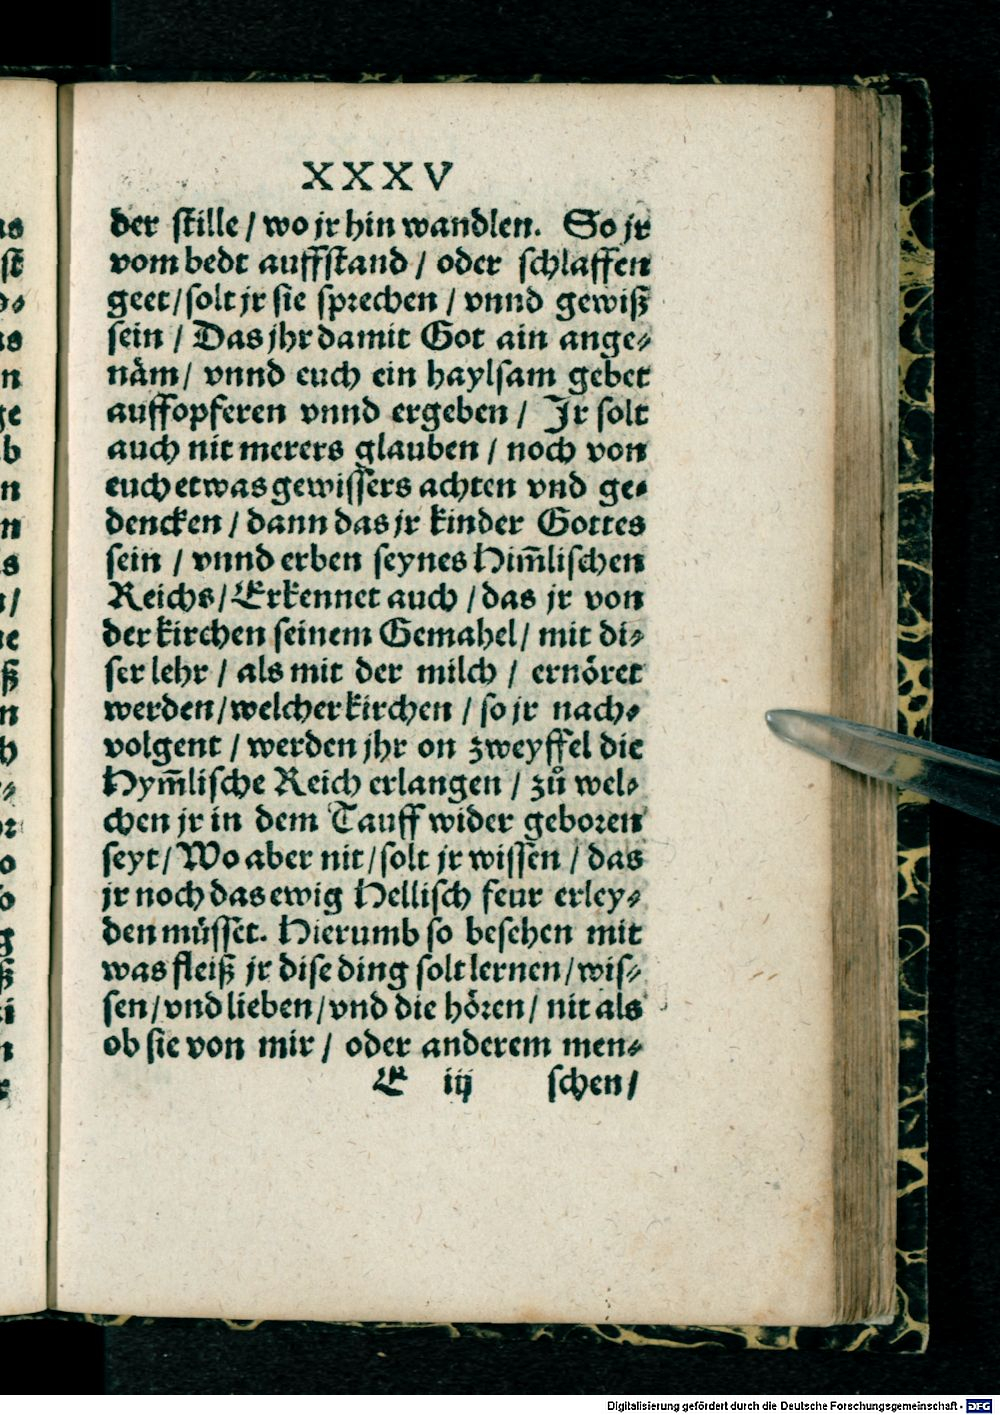 XXXV
der stille / wo jr hin wandlen. So jr
vom bedt auffstand / oder schlaffen
geet / solt jr sie sprechen / vnnd gewiß
sein / Das jhr damit Got ain ange-
näm / vnnd euch ein haylsam gebet
auffopferen vnnd ergeben / Jr solt
auch nit merers glauben / noch von
euch etwas gewissers achten vnd ge-
dencken / dann das jr kinder Gottes
sein / vnnd erben seynes Him̃lischen
Reichs / Erkennet auch / das jr von
der kirchen seinem Gemahel / mit di-
ser lehr / als mit der milch / ernöret
werden / welcher kirchen / so jr nach-
volgent / werden jhr on zweyffel die
Hym̃lische Reich erlangen / zů wel-
chen jr in dem Tauff wider geboren
seyt / Wo aber nit / solt jr wissen / das
jr noch das ewig Hellisch feur erley-
den müsset. Hierumb so besehen mit
was fleiß jr dise ding solt lernen / wis-
sen / vnd lieben / vnd die hören / nit als
ob sie von mir / oder anderem men-
E iij schen /
Digitalisierung gefördert durch die Deutsche Forschungsgemeinschaft - DFG